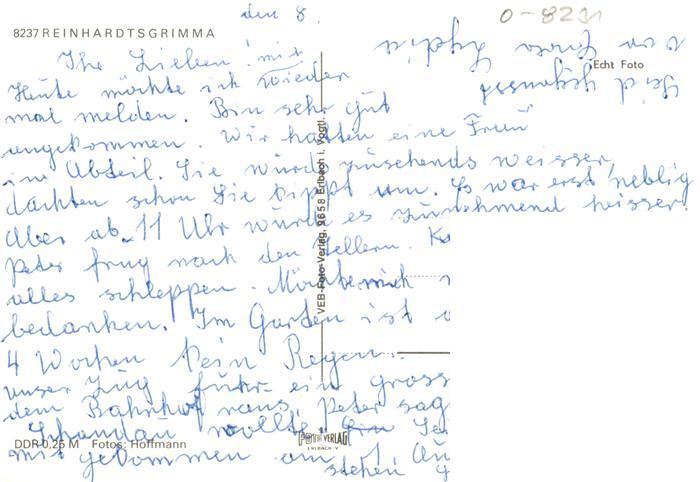 den 8.
0-8231
8237 REINHARDTSGRIMMA
Ihr Lieben!
Heute möchte ich mich wieder
mal melden. Bin sehr gut
angekommen. Wir hatten eine Frau
im Abteil. Sie wurde zusehends weisser,
dachten schon sie kippt um. Es war erst neblig
Aber ab 11 Uhr wurde es zunehmend heisser.
Peter frug nach den Tellern.
alles schleppen. Möchte mich
bedanken. Im Garten ist
4 Wochen kein Regen.
unser Zug fuhr ein gross
dem Bahnhof raus. Peter sag
Schandau wollte
mit gekommen am
stehen
Seid gegrüsst
von
Echt Foto
VEB Foto-Verlag, 9658 Erlbach i. Vogtl.
DDR 0,25 M Fotos: Hoffmann
VERLAG
ERLBACH-V